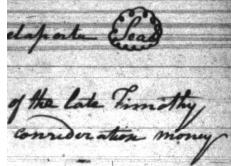 delaporte Seal
of the late Timothy
consideration money